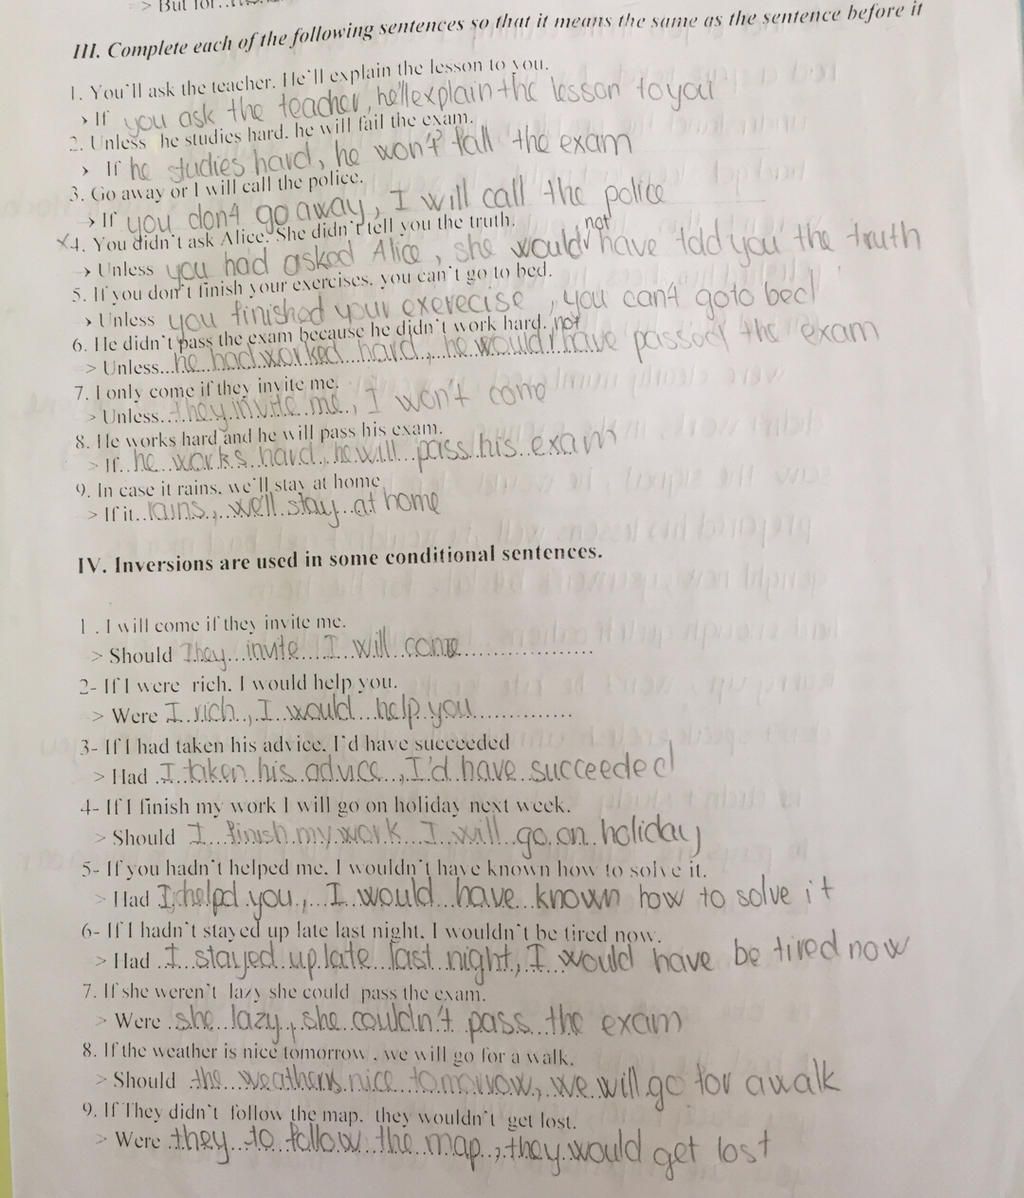 > But for..
III. Complete each of the following sentences so that it means the same as the sentence before it
1. You'll ask the teacher. He'll explain the lesson to you.
> If you ask the teacher, he'll explain the lesson to you
2. Unless he studies hard. he will fail the exam.
> If he studies hard, he won't fall the exam
3. Go away or I will call the police.
> If you don't go away, I will call the police
x4. You didn't ask Alice. She didn't tell you the truth.
not
> Unless you had asked Alice, she would have told you the truth
5. If you don't finish your exercises, you can't go to bed.
> Unless you finished your exerecise, you can't goto bed
6. He didn't pass the exam because he didn't work hard.
not
> Unless...he had worked hard, he would have passed the exam
7. I only come if they invite me.
> Unless...they invite me, I won't come
8. He works hard and he will pass his exam.
> If..he works hard, he will pass his exam
9. In case it rains. we'll stay at home
> If it..rains, we'll stay at home
IV. Inversions are used in some conditional sentences.
1 . I will come if they invite me.
> Should They...invite...I will come...............
2- If I were rich. I would help you.
> Were I rich, I would help you.............
3- If I had taken his advice. I'd have succeeded
> Had .I..taken his advice.., I'd have succeeded
4- If I finish my work I will go on holiday next week.
> Should I finish my work I will go on holiday
5- If you hadn't helped me. I wouldn't have known how to solve it.
> Had I helpd you, I would have known how to solve it
6- If I hadn't stayed up late last night. I wouldn't be tired now.
> Had .I stayed up late last night, I would have be tired now
7. If she weren't lazy she could pass the exam.
> Were .she lazy, she couldn't pass the exam
8. If the weather is nice tomorrow . we will go for a walk.
> Should the nice tomorrow, we will go for a walk
9. If They didn't follow the map. they wouldn't get lost.
> Were .they to follow the map, they would get lost